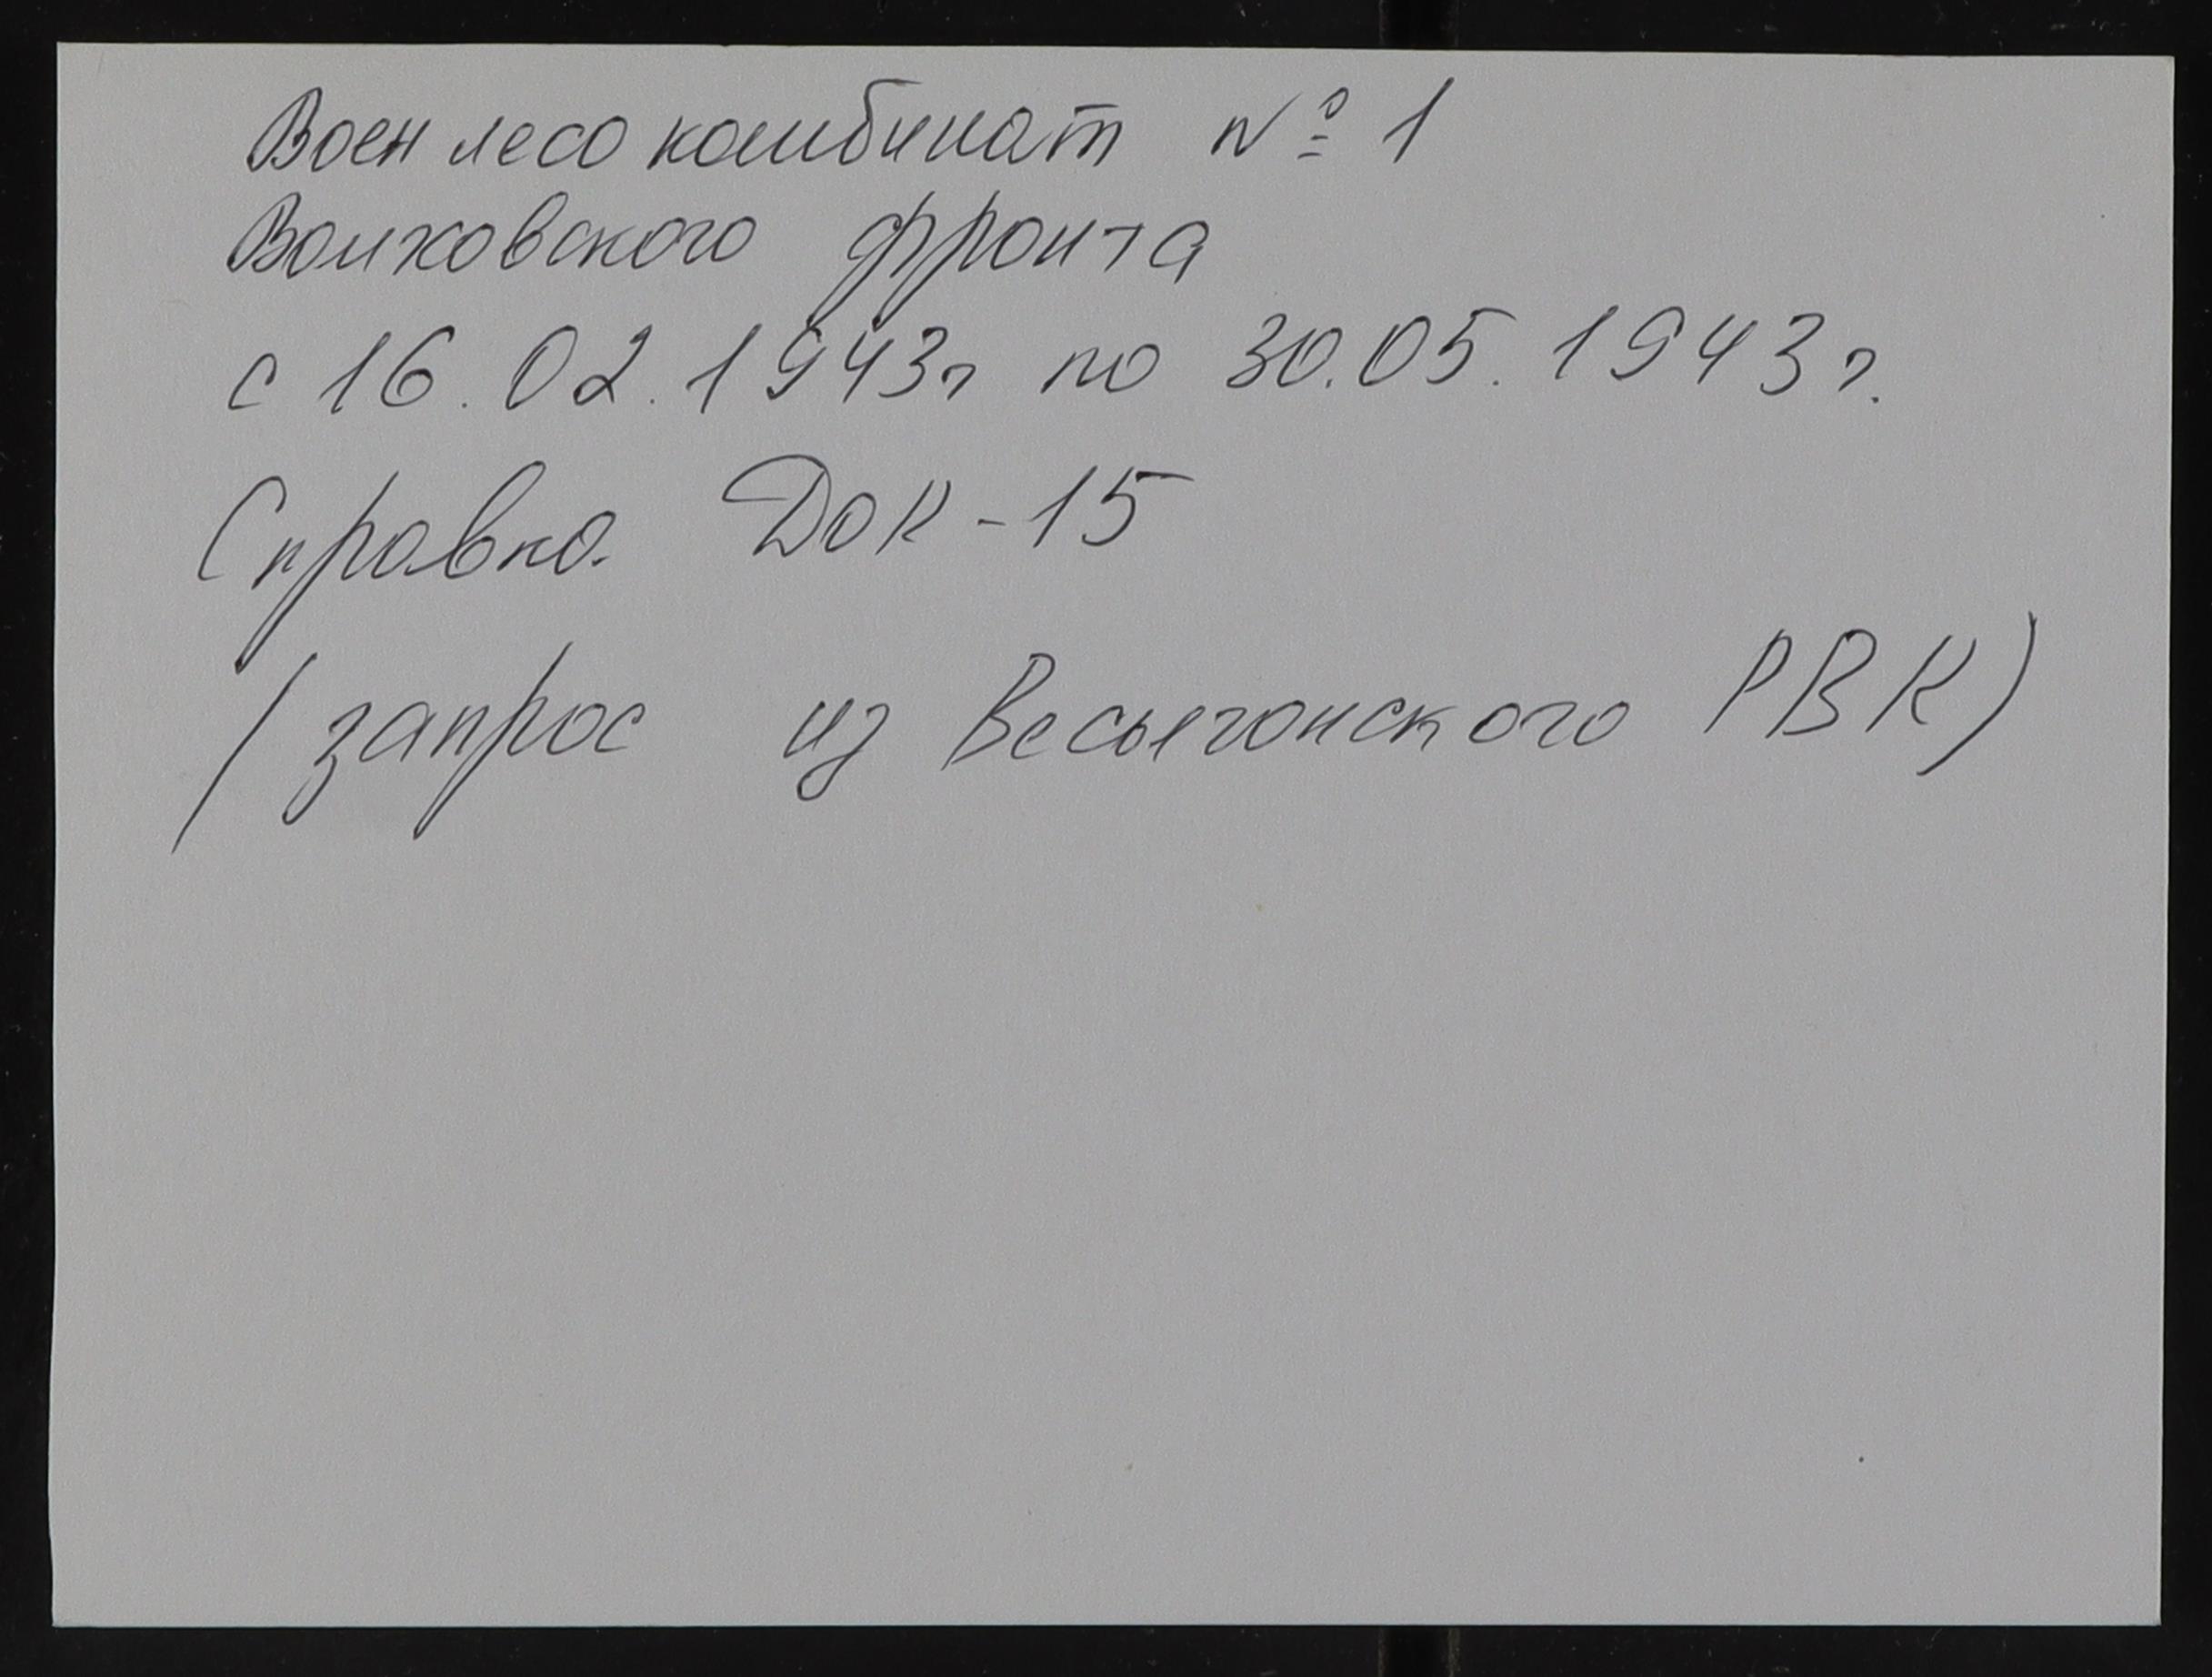 Военлесокомбинат № 1
Волховского фронта
с 16.02.1943г по 30.05.1943г.
Справка ДОК-15
(запрос из Весьегонского РВК)